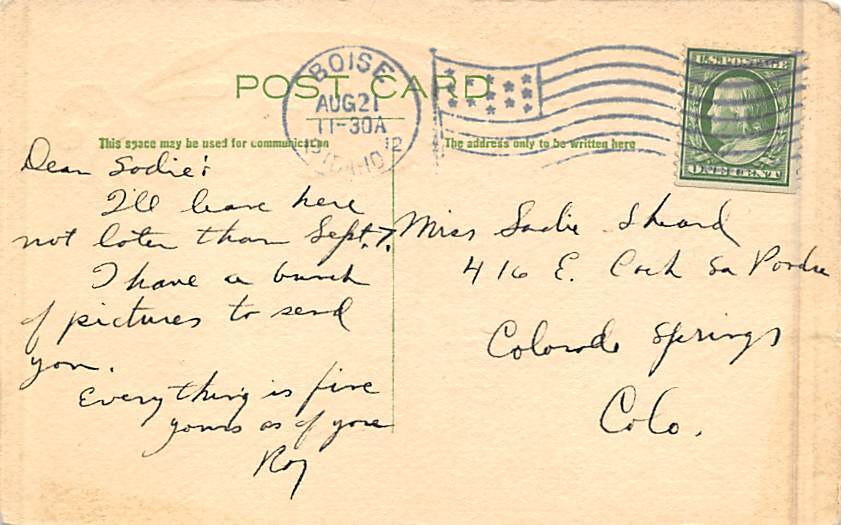 POST CARD
BOISE
AUG 21
11-30A
1912
IDAHO
U.S. POSTAGE
ONE CENT
This space may be used for communication
The address only to be written here
Dear Sadie:
I'll leave here
not later than Sept. 7.
I have a bunch
of pictures to send
you.
Everything is fine
yours as of yore
Roy
Miss Sadie Sheard
416 E. Cach La Poudre
Colorado Springs
Colo.